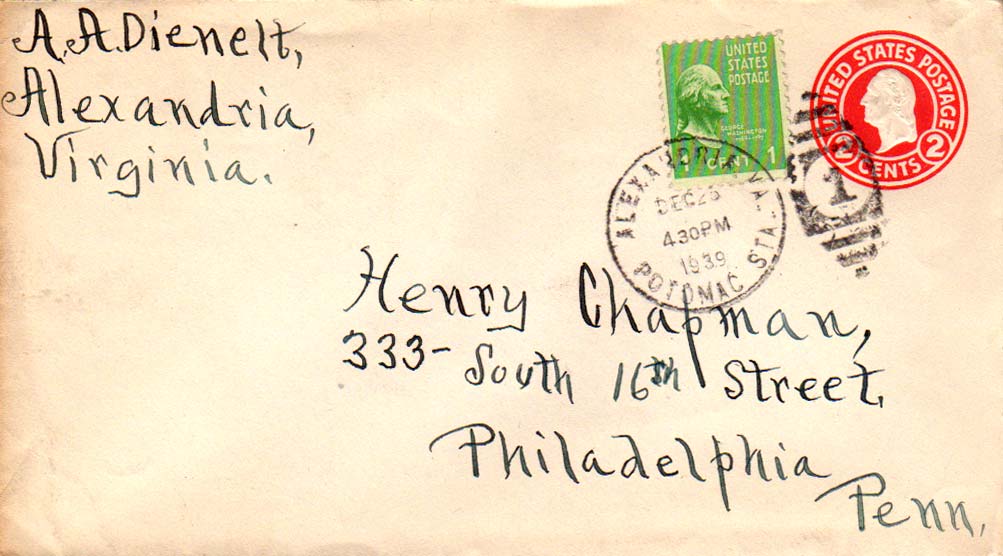 A.A. Dienelt,
Alexandria,
Virginia.
UNITED
STATES
POSTAGE
GEORGE
WASHINGTON
1 CENT 1
UNITED STATES POSTAGE
2 CENTS 2
ALEXANDRIA, VA.
DEC 26
4 30 PM
1939
POTOMAC STA.
1
Henry Chapman,
333- South 16th Street,
Philadelphia
Penn.